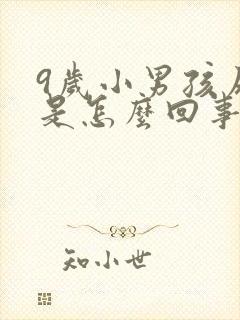 9歲小男孩
是怎麼回事
知小世